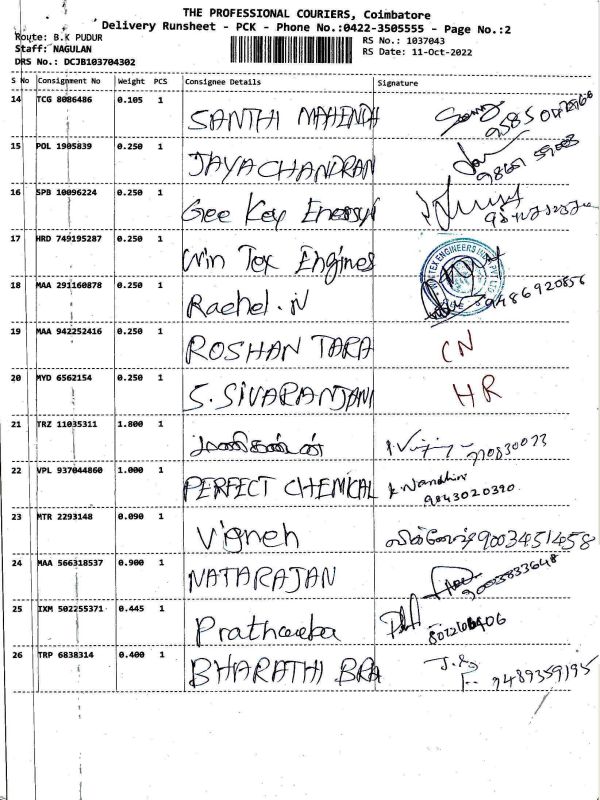 THE PROFESSIONAL COURIERS, Coimbatore
Delivery Runsheet - PCK - Phone No.:0422-3505555 - Page No.:2
Route: B.K PUDUR
RS No.: 1037043
Staff: NAGULAN
RS Date: 11-Oct-2022
DRS No.: DCJB103704302
S No Consignment No Weight PCS Consignee Details Signature
14 TCG 8086486 0.105 1 SANTHI MAHENDH
15 POL 1905839 0.250 1 JAYACHANDRAN
16 SPB 10096224 0.250 1 Gee Key Energy
17 HRD 749195287 0.250 1 Win Tex Engines
18 MAA 291160878 0.250 1 Rachel.N 9486920856
19 MAA 942252416 0.250 1 ROSHAN TARA CN
20 MYD 6562154 0.250 1 S.SIVARANJANI HR
21 TRZ 11035311 1.800 1 மணிகண்டன்
22 VPL 937044860 1.000 1 PERFECT CHEMICAL K Nandhini 9843020390
23 MTR 2293148 0.090 1 Vigneh 9003451458
24 MAA 566318537 0.900 1 NATARAJAN
25 IXM 502255371 0.445 1
26 TRP 6838314 0.400 1 BHARATHI BRA 9489359195